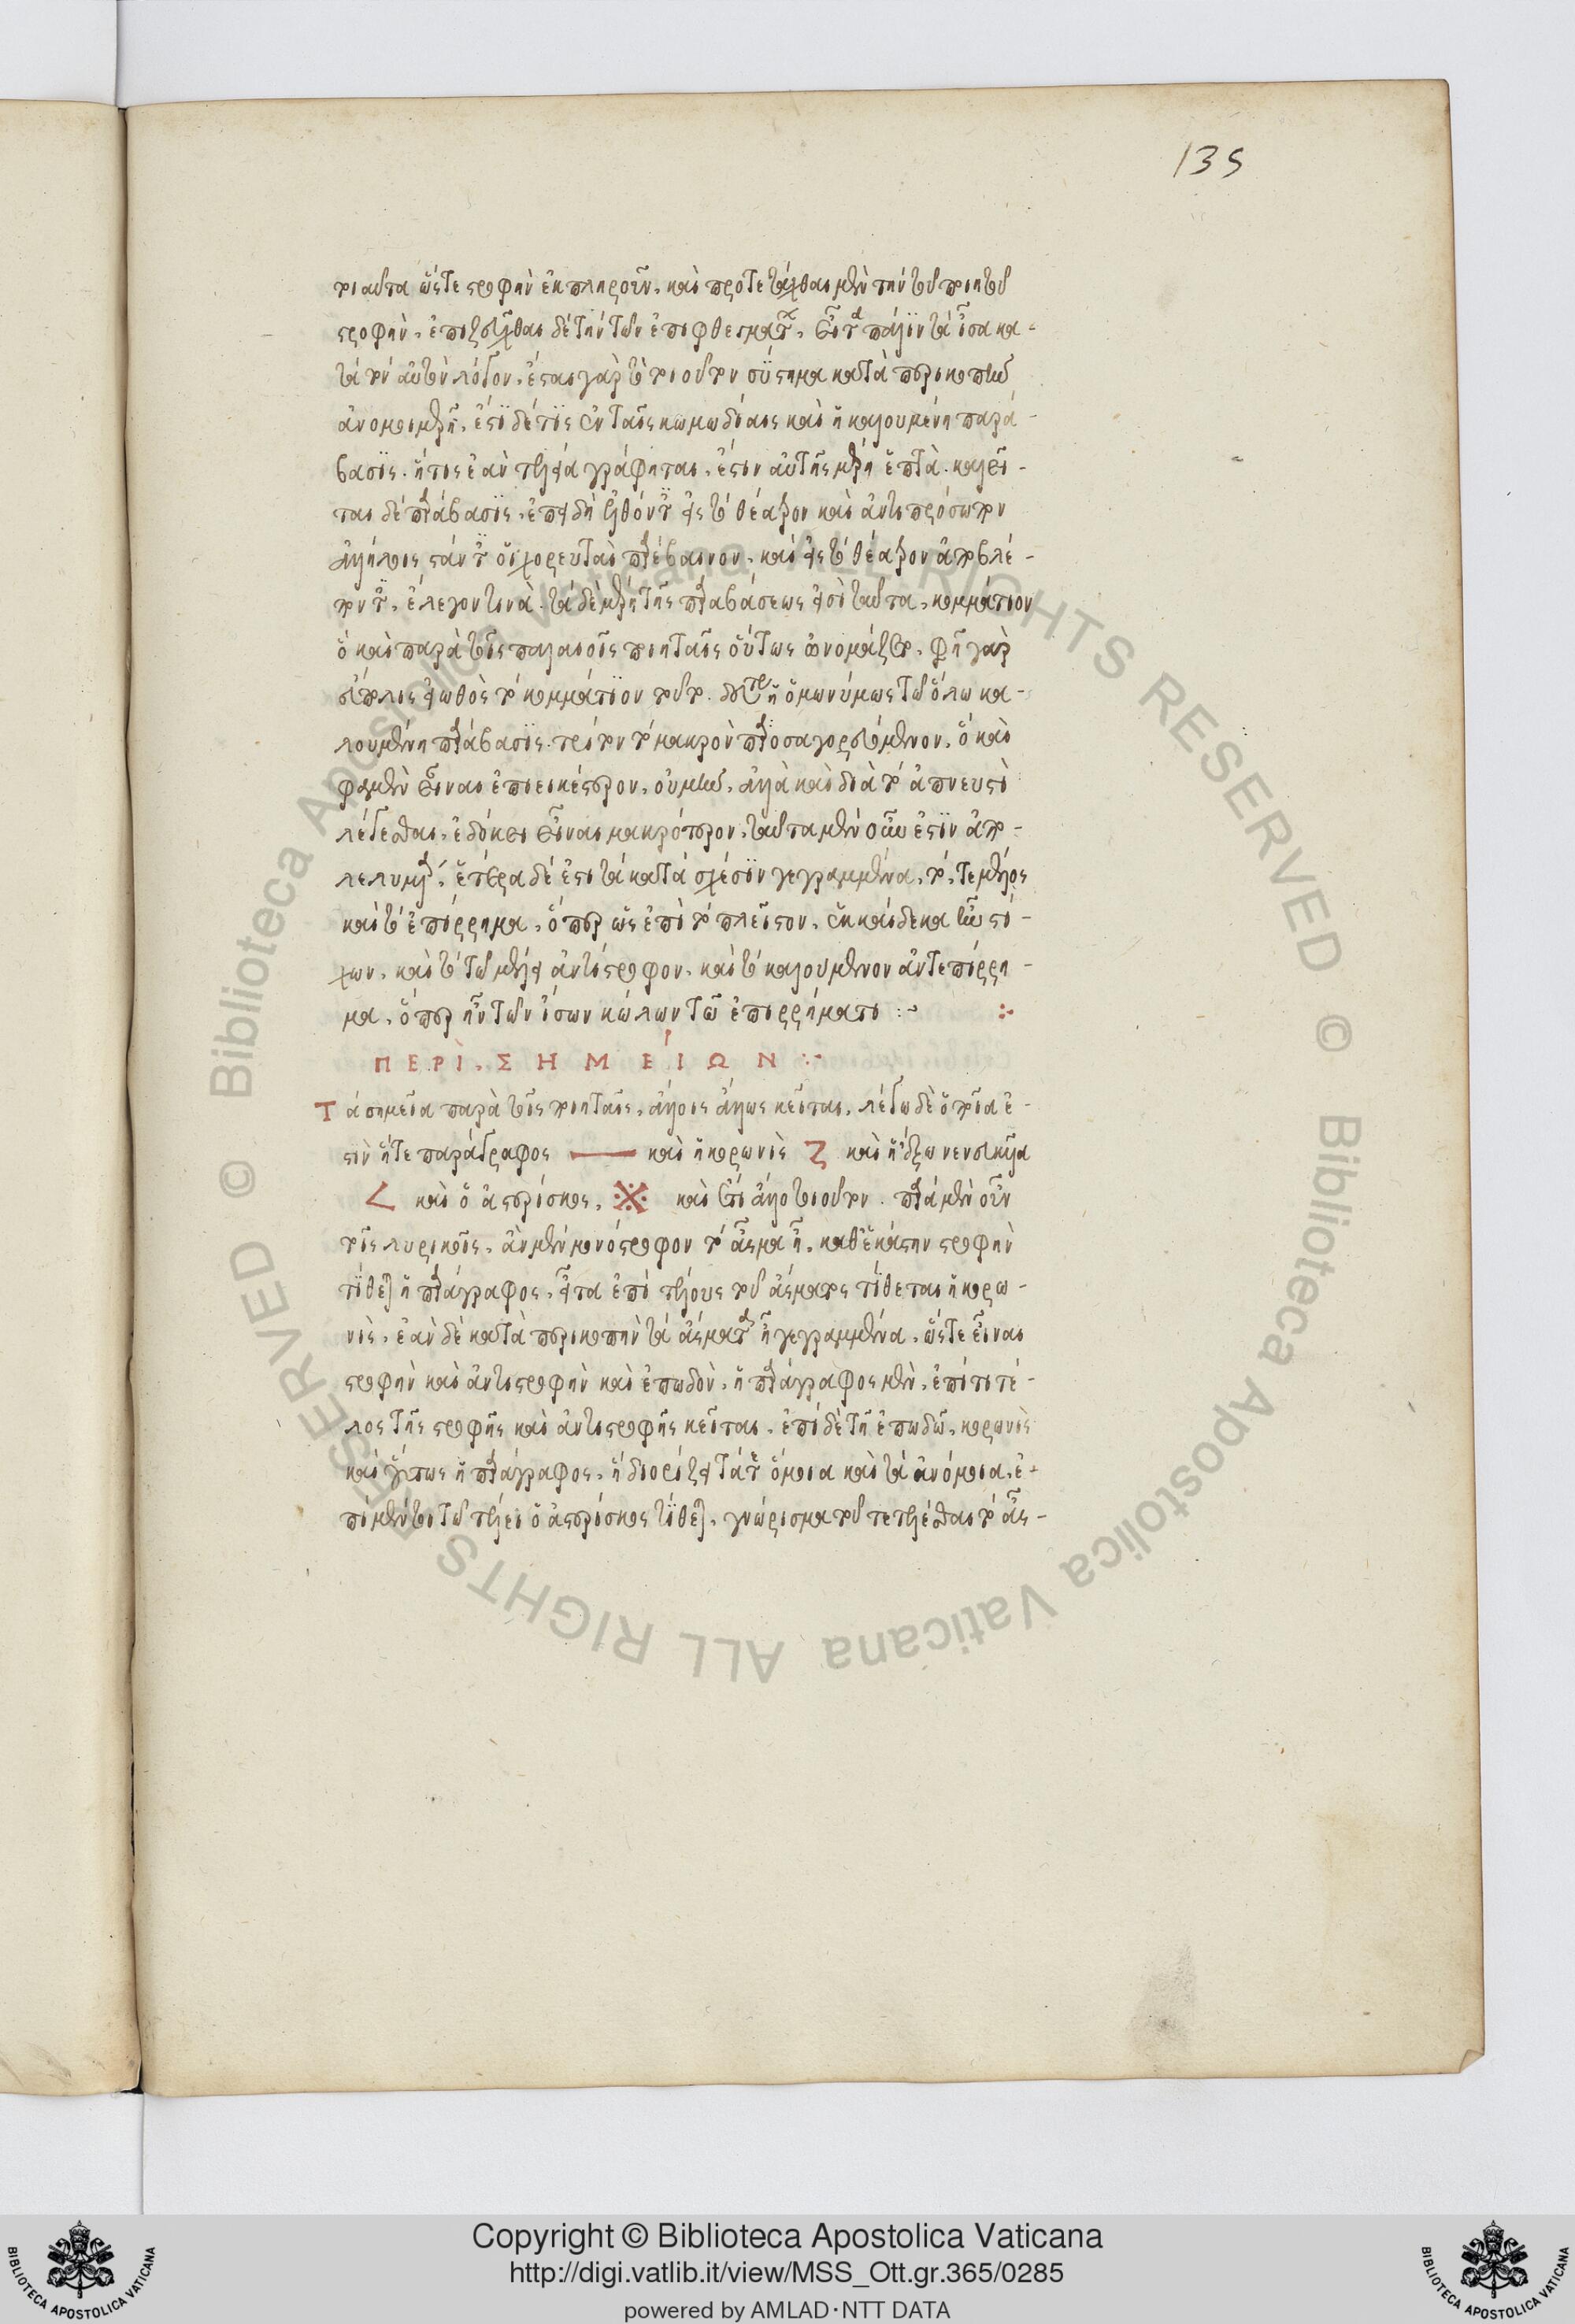 135
τοιαῦτα ὥστε στροφὴν ἐκπληροῦν. καὶ προτετάχθαι μὲν τὴν τοῦ ποιητοῦ
στροφὴν. ἐπεζεῦχθαι δὲ τὴν τῶν ἐπιφθεγμάτων. εἶτα πάλιν τὰ ἴσα κα-
τὰ τὸν αὐτὸν λόγον. ἔσται γὰρ τὸ τοιοῦτον σύστημα κατὰ περικοπὴν
ἀνομοιομερῆ. ἔστι δέ τις ἐν ταῖς κωμωδίαις καὶ ἡ καλουμένη παρά-
βασις. ἥτις ἐὰν τελεία γράφηται. ἔστιν αὐτῆς μέρη ἑπτὰ. καλεῖ-
ται δὲ παράβασις. ἐπειδὴ εἰσελθόντες εἰς τὸ θέατρον καὶ ἀντιπρόσωπον
ἀλλήλοις στάντες οἱ χορευταὶ παρέβαινον. καὶ εἰς τὸ θέατρον ἀποβλέ-
ποντες. ἔλεγον τινὰ. τὰ δὲ μέρη τῆς παραβάσεως εἰσὶ ταῦτα. κομμάτιον
ὃ καὶ παρὰ τοῖς παλαιοῖς ποιηταῖς οὕτως ὀνομάζεται. φησὶ γὰρ
εὔπολις εἰωθὸς τὸ κομμάτιον τοῦτο. δεύτερον ἡ ὁμωνύμως τῷ ὅλω κα-
λουμένη παράβασις. τρίτον τὸ μακρὸν προσαγορευόμενον. ὃ καὶ
φαμὲν εἶναι ἐπιεικέστερον. οὐ μὴν. ἀλλὰ καὶ διὰ τὸ ἀπνευστὶ
λέγεσθαι. ἐδόκει εἶναι μακρότερον. ταῦτα μὲν οὖν ἐστὶν ἀπο-
λελυμένα. ἕτερα δέ ἐστι τὰ κατὰ σχέσιν γεγραμμένα. τό, τε μέλος
καὶ τὸ ἐπίρρημα. ὅπερ ὡς ἐπὶ τὸ πλεῖστον. ἑκκαίδεκα ἦν στί-
χων. καὶ τὸ τῷ μέλει ἀντίστροφον. καὶ τὸ καλούμενον ἀντεπίρρη-
μα. ὅπερ ἦν τῶν ἴσων κώλων τῶ ἐπιρρήματι :-
ΠΕΡΙ. ΣΗΜΕΙΩΝ :-
Τὰ σημεῖα παρὰ τοῖς ποιηταῖς. ἄλλοις ἄλλως κεῖται. λέγω δὲ ὁποῖα ἐ-
στὶν ἥτε παράγραφος — καὶ ἡ κορωνὶς Ζ καὶ ἡ ἔξω νενευκῖα
< καὶ ὁ ἀστερίσκος. ※ καὶ εἴ τι ἄλλο τοιοῦτον. παρὰ μὲν οὖν
τοῖς λυρικοῖς. ἂν μὲν μονόστροφον τὸ ἆσμα ἦ. καθ' ἑκάστην στροφὴν
τίθεται ἡ παράγραφος. εἶτα ἐπὶ τέλους τοῦ ἄσματος τίθεται ἡ κορω-
νὶς. ἐὰν δὲ κατὰ περικοπὴν τὰ ἄσματα ἦ γεγραμμένα. ὥστε εἶναι
στροφὴν καὶ ἀντιστροφὴν καὶ ἐπωδὸν. ἡ παράγραφος μὲν. ἐπὶ τὸ τέ-
λος τῆς στροφῆς καὶ ἀντιστροφῆς κεῖται. ἐπὶ δὲ τῆ ἐπωδῶ. κορωνὶς
καὶ οὕτως ἡ παράγραφος. ἡ διορίζει τά τε ὅμοια καὶ τὰ ἀνόμοια. ἐ-
πὶ μέντοι τῷ τέλει ὁ ἀστερίσκος τίθεται. γνώρισμα τοῦ τετελέσθαι τὸ ἆσ-
© Biblioteca Apostolica Vaticana ALL RIGHTS RESERVED © Biblioteca Apostolica Vaticana ALL RIGHTS RESERVED
Copyright © Biblioteca Apostolica Vaticana
http://digi.vatlib.it/view/MSS_Ott.gr.365/0285
powered by AMLAD·NTT DATA
BIBLIOTECA APOSTOLICA VATICANA
BIBLIOTECA APOSTOLICA VATICANA